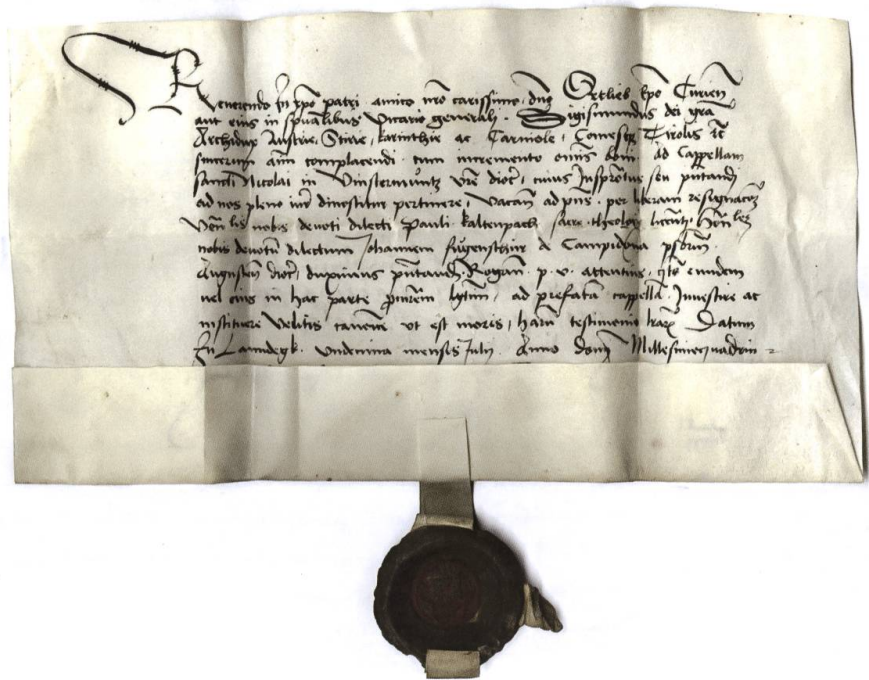 Reverendo In xpo patri amico nro carissimo dno Ortlieb Epo Curien
aut eius in spualibus vicario generali Sigismundus dei gra
Archidux Austrie, Stirie, karinthie ac Carniole, Comesq Tirolis etc
sincerum complacendi cum incremento omnis boni ad Cappellam
sancti Nicolai in Vinstermuntz vre dioc, cuius Inspretus seu pntandi
ad nos pleno iure dinoscitur pertinere, vacan ad pns per liberam resignacoem
nobis devoti dilecti Pauli kaltenpach sacre theologie licenti
nobis devotu dilectum Johannem de Campidona psbrm
Augusten dioc, duximus pntand Rogan p. v. attentius, eundem
vel eius in hac parte ad prefata cappella Investire ac
instituere velitis canonice ut est moris, haru testimonio lrar Datum
In Lanndegk undecima mensis Julij Anno domi Millesimoquadrin